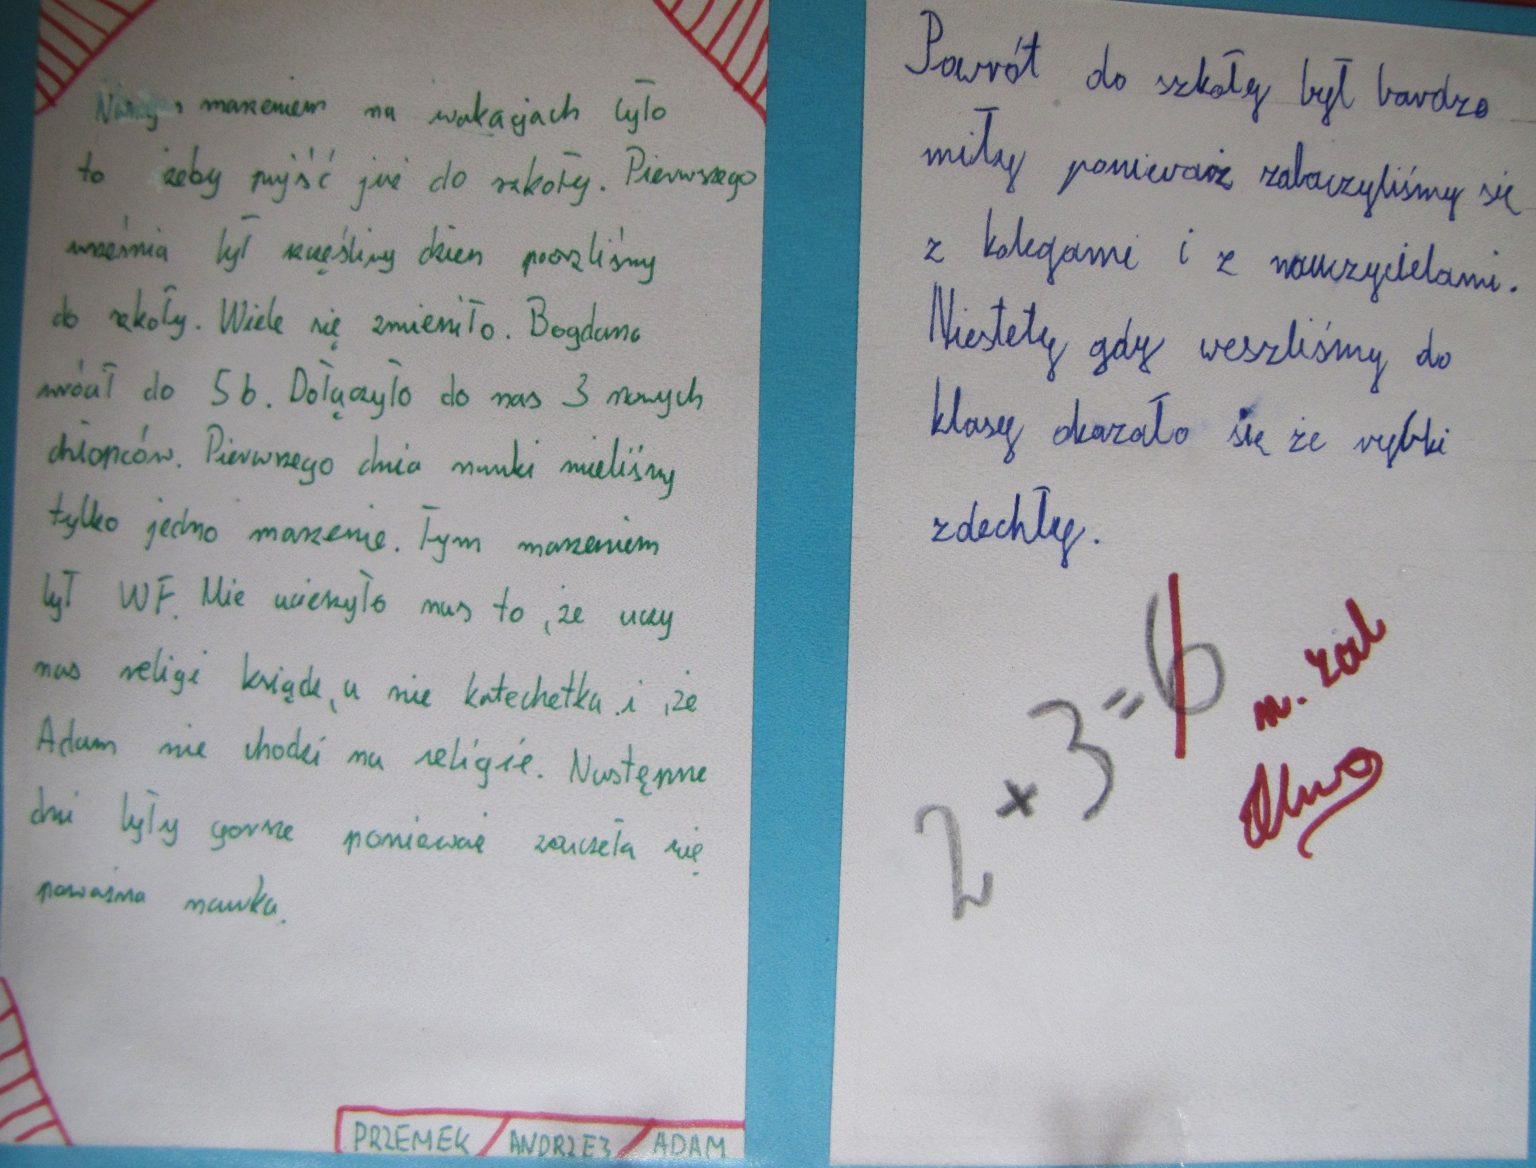 Naszym marzeniem na wakacjach było
to żeby pujść już do szkoły. Pierwszego
września był szczęśliwy dzien poszliśmy
do szkoły. Wiele się zmieniło. Bogdana
wrócił do 5b. Dołączyło do nas 3 nowych
chłopców. Pierwszego dnia nauki mieliśmy
tylko jedno marzenie. Tym marzeniem
był WF. Nie ucieszyło nas to, że uczy
nas religi ksiądz, a nie katechetka i, że
Adam nie chodzi na religię. Następne
dni były gorsze ponieważ zaczeła się
poważna nauka.
PRZEMEK / ANDRZEJ / ADAM
Powrót do szkoły był bardzo
miły ponieważ zabaczyliśmy się
z kolegami i z nauczycielami.
Niestety gdy weszliśmy do
klasy okazało się że rybki
zdechły.
2 x 3 = 6